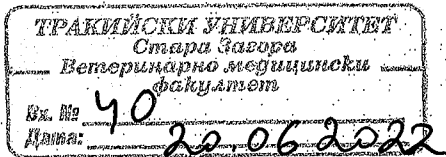 ТРАКИЙСКИ УНИВЕРСИТЕТ
Стара Загора
Ветеринарно медицински
факултет
Вх. № 40
Дата: 20.06.2022